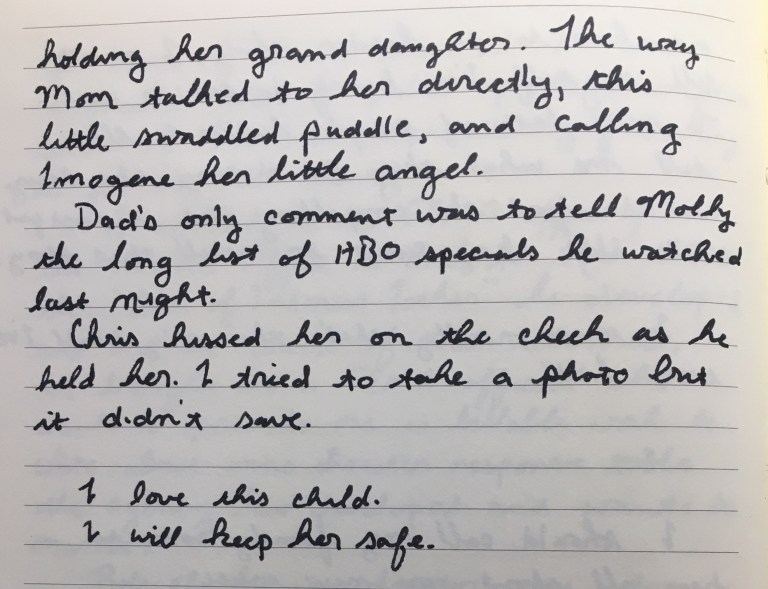 holding her grand daughter. The way
Mom talked to her directly, this
little swaddled puddle, and calling
Imogene her little angel.
Dad's only comment was to tell Molly
the long list of HBO specials he watched
last night.
Chris kissed her on the cheek as he
held her. I tried to take a photo but
it didn't save.
I love this child.
I will keep her safe.